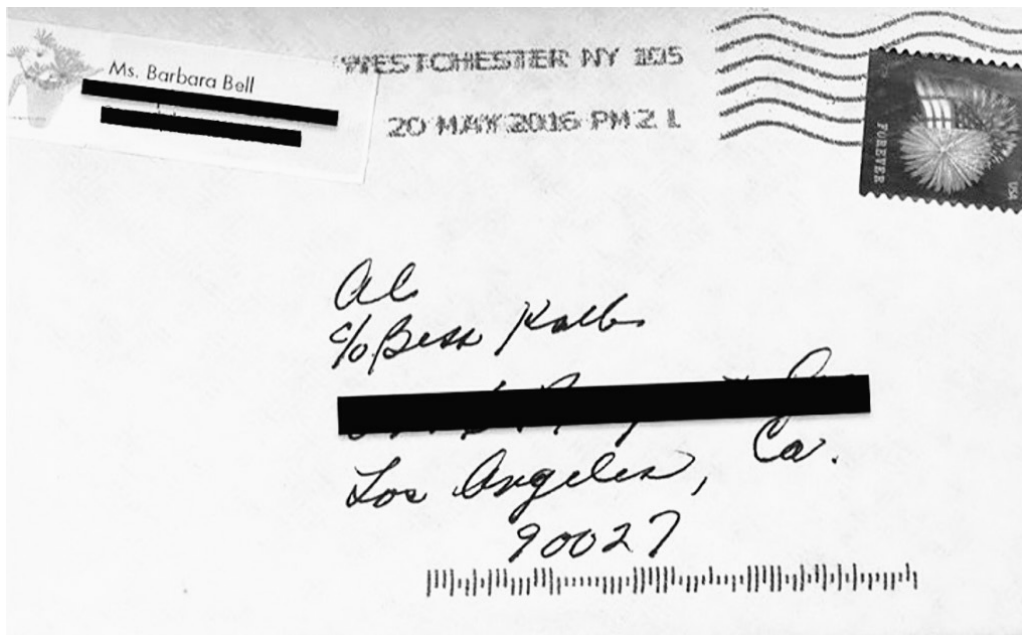 Ms. Barbara Bell
WESTCHESTER NY 105
20 MAY 2016 PM 2 L
FOREVER
USA
Al
c/o Bess Kalb
Los Angeles, Ca.
90027